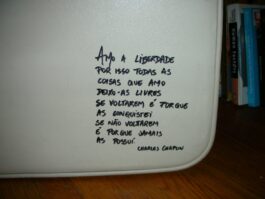 AMO A LIBERDADE
POR ISSO TODAS AS
COISAS QUE AMO
DEIXO-AS LIVRES
SE VOLTAREM É PORQUE
AS CONQUISTEI
SE NÃO VOLTAREM
É PORQUE JAMAIS
AS POSSUÍ
CHARLES CHAPLIN